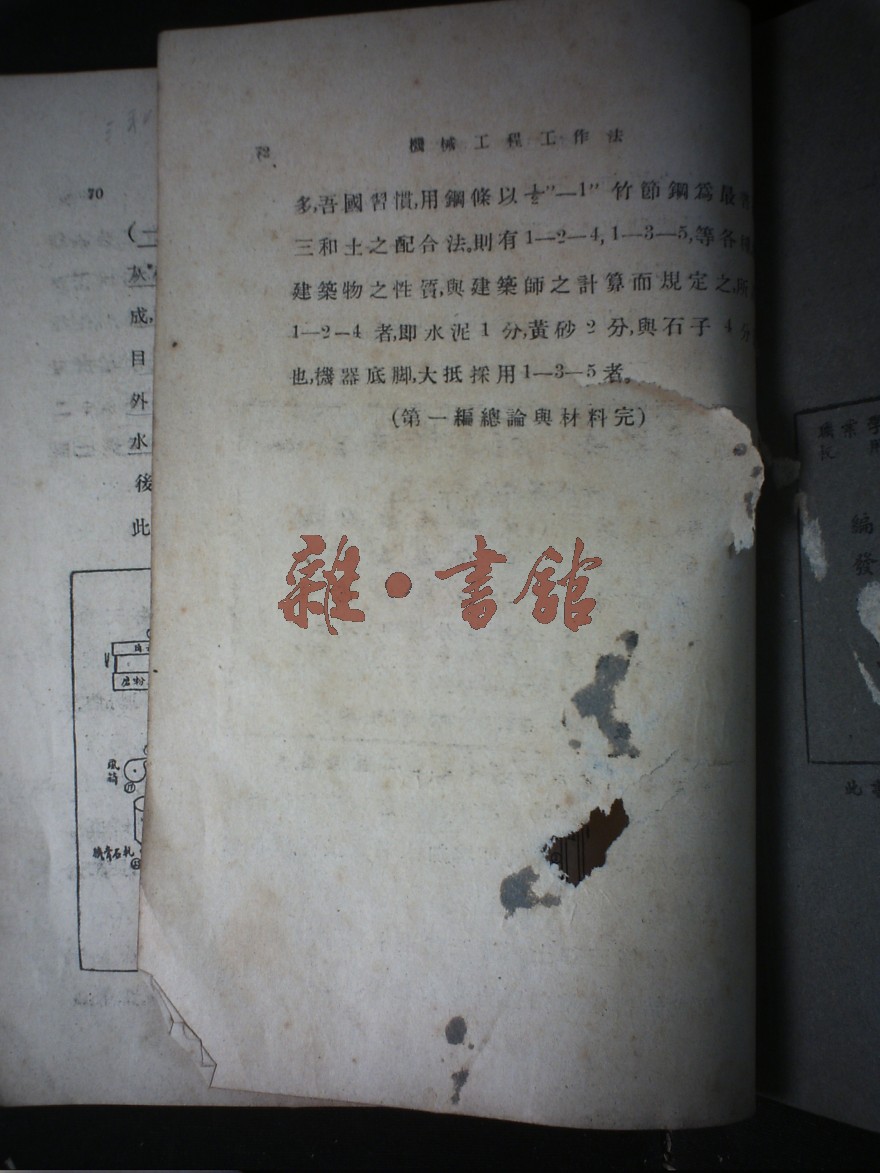 70
(二
灰
成,
目
外
水
後
此
風箱
72 機械工程工作法
多,吾國習慣,用鋼條以½"—1" 竹節鋼爲最
三和土之配合法,則有1—2—4, 1—3—5,等各
建築物之性質,與建築師之計算而規定之,所
1—2—4 者,即水泥 1 分,黃砂 2 分,與石子 4 分
也,機器底脚,大抵採用1—3—5者。
(第一編總論與材料完)
雜·書館
編
發
此書